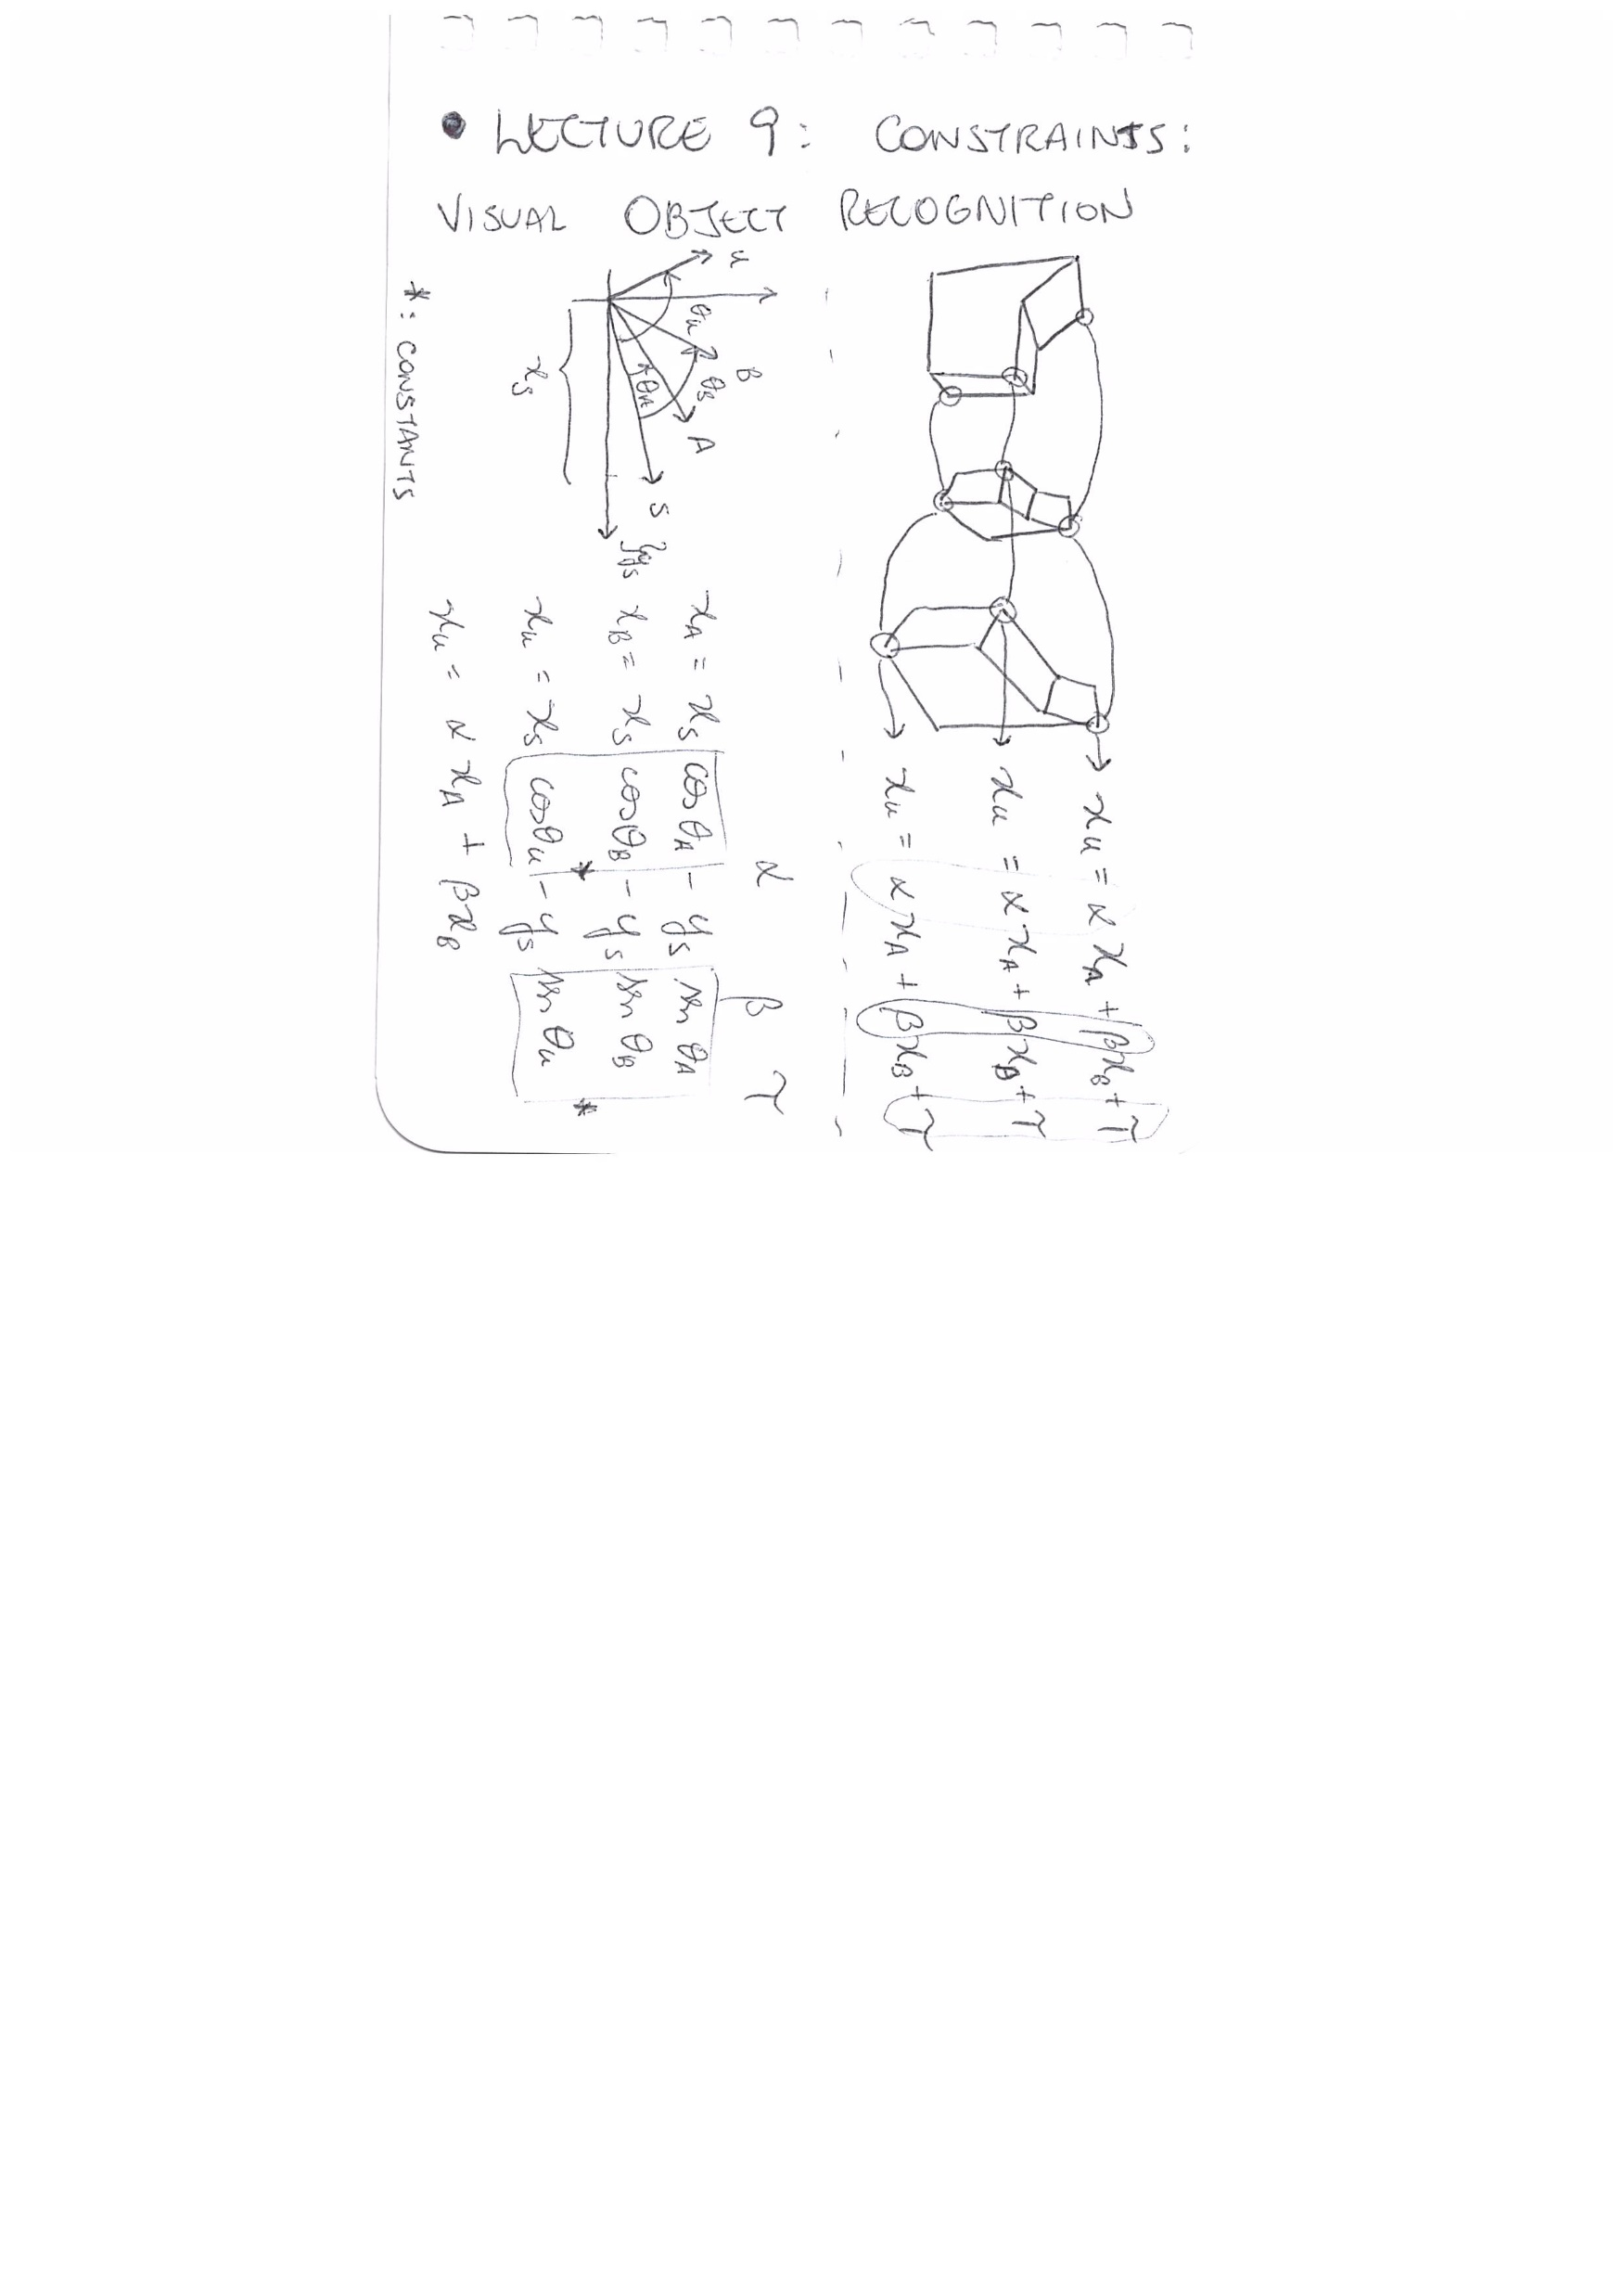 • LECTURE 9: CONSTRAINTS:
VISUAL OBJECT RECOGNITION
x_u = α x_A + β x_B + τ
x_u = α x_A + β x_B + τ
x_u = α x_A + β x_B + τ
α β τ
u
B
A
S
θ_u
θ_B
θ_A
y_s
x_s
x_A = x_s cos θ_A - y_s sin θ_A
x_B = x_s cos θ_B - y_s sin θ_B
x_u = x_s cos θ_u - y_s sin θ_u
* *
x_u = α x_A + β x_B
*: CONSTANTS